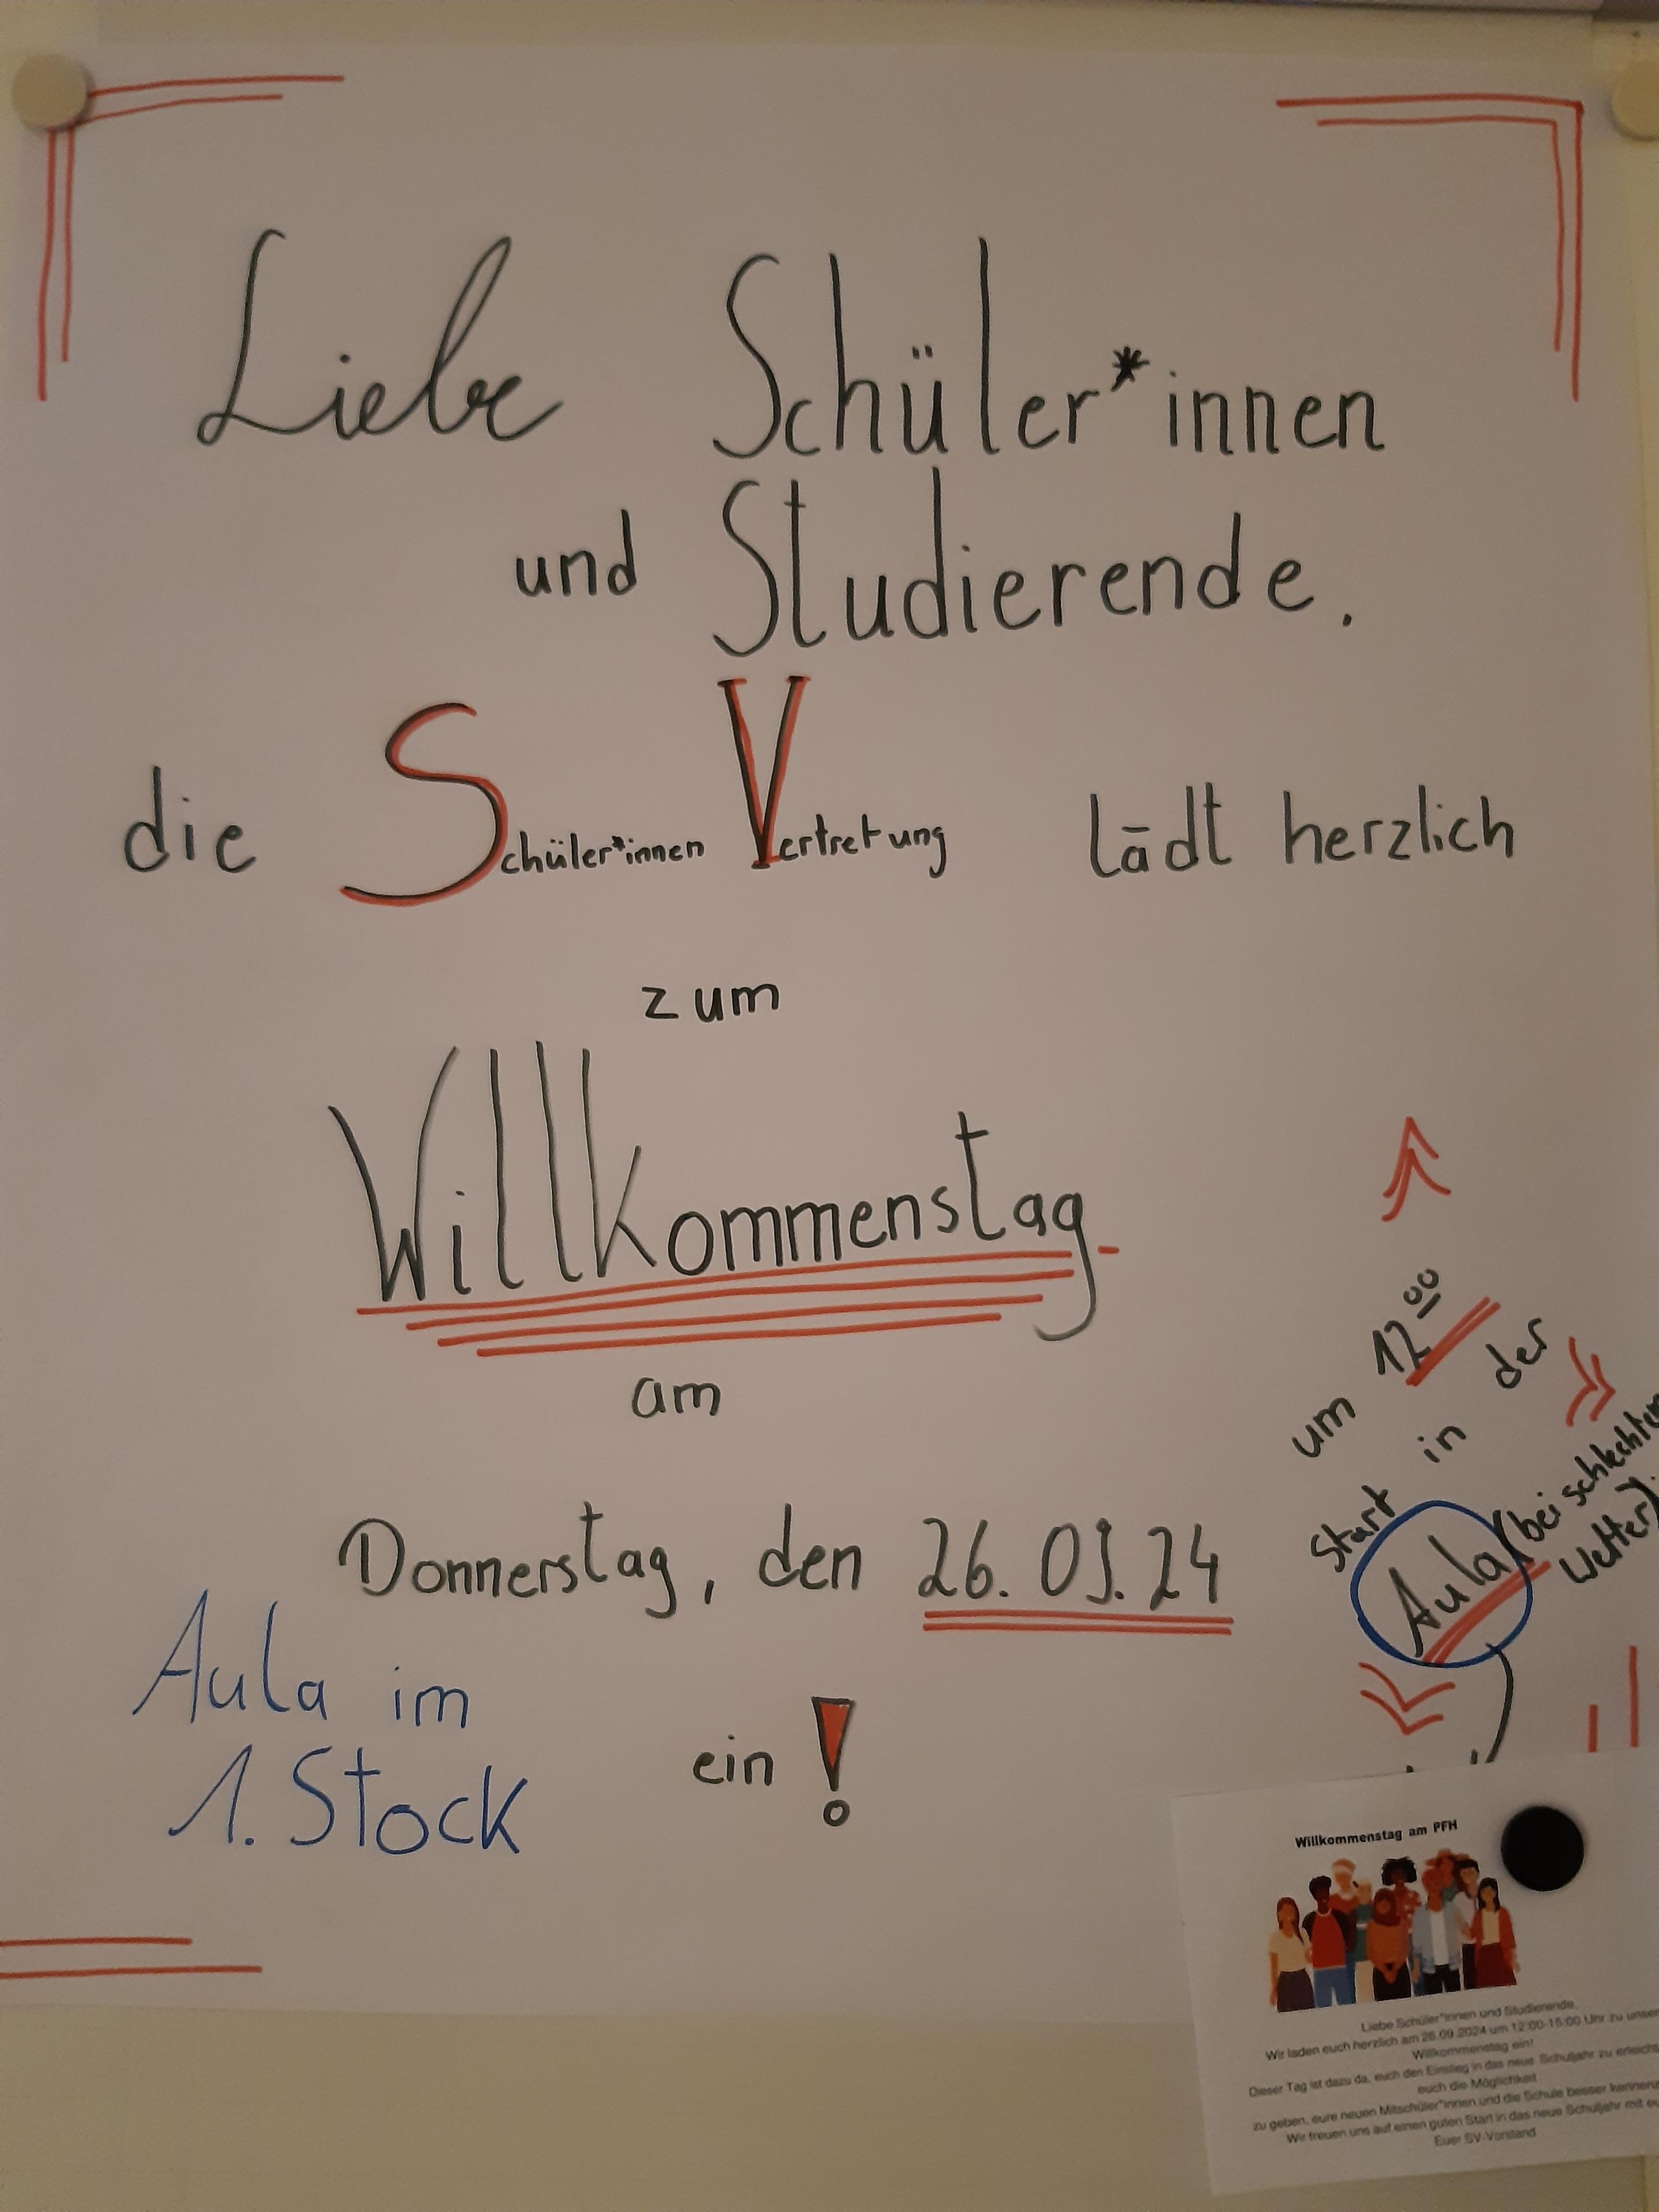 Liebe Schüler*innen
und Studierende.
die Schüler*innen Vertretung lädt herzlich
zum
Willkommenstag
am
Donnerstag, den 26.09.24
ein!
um 12⁰⁰
Start in der
Aula (bei schlechtem
Wetter).
Aula im
1. Stock
Willkommenstag am PFH
Liebe Schüler*innen und Studierende,
Wir laden euch herzlich am 26.09.2024 um 12:00-15:00 Uhr zu
Willkommenstag ein!
Dieser Tag ist dazu da, euch den Einstieg in das neue Schuljahr zu
euch die Möglichkeit
zu geben, eure neuen Mitschüler*innen und die Schule besser
Wir freuen uns auf einen guten Start in das neue Schuljahr mit
Euer SV-Vorstand